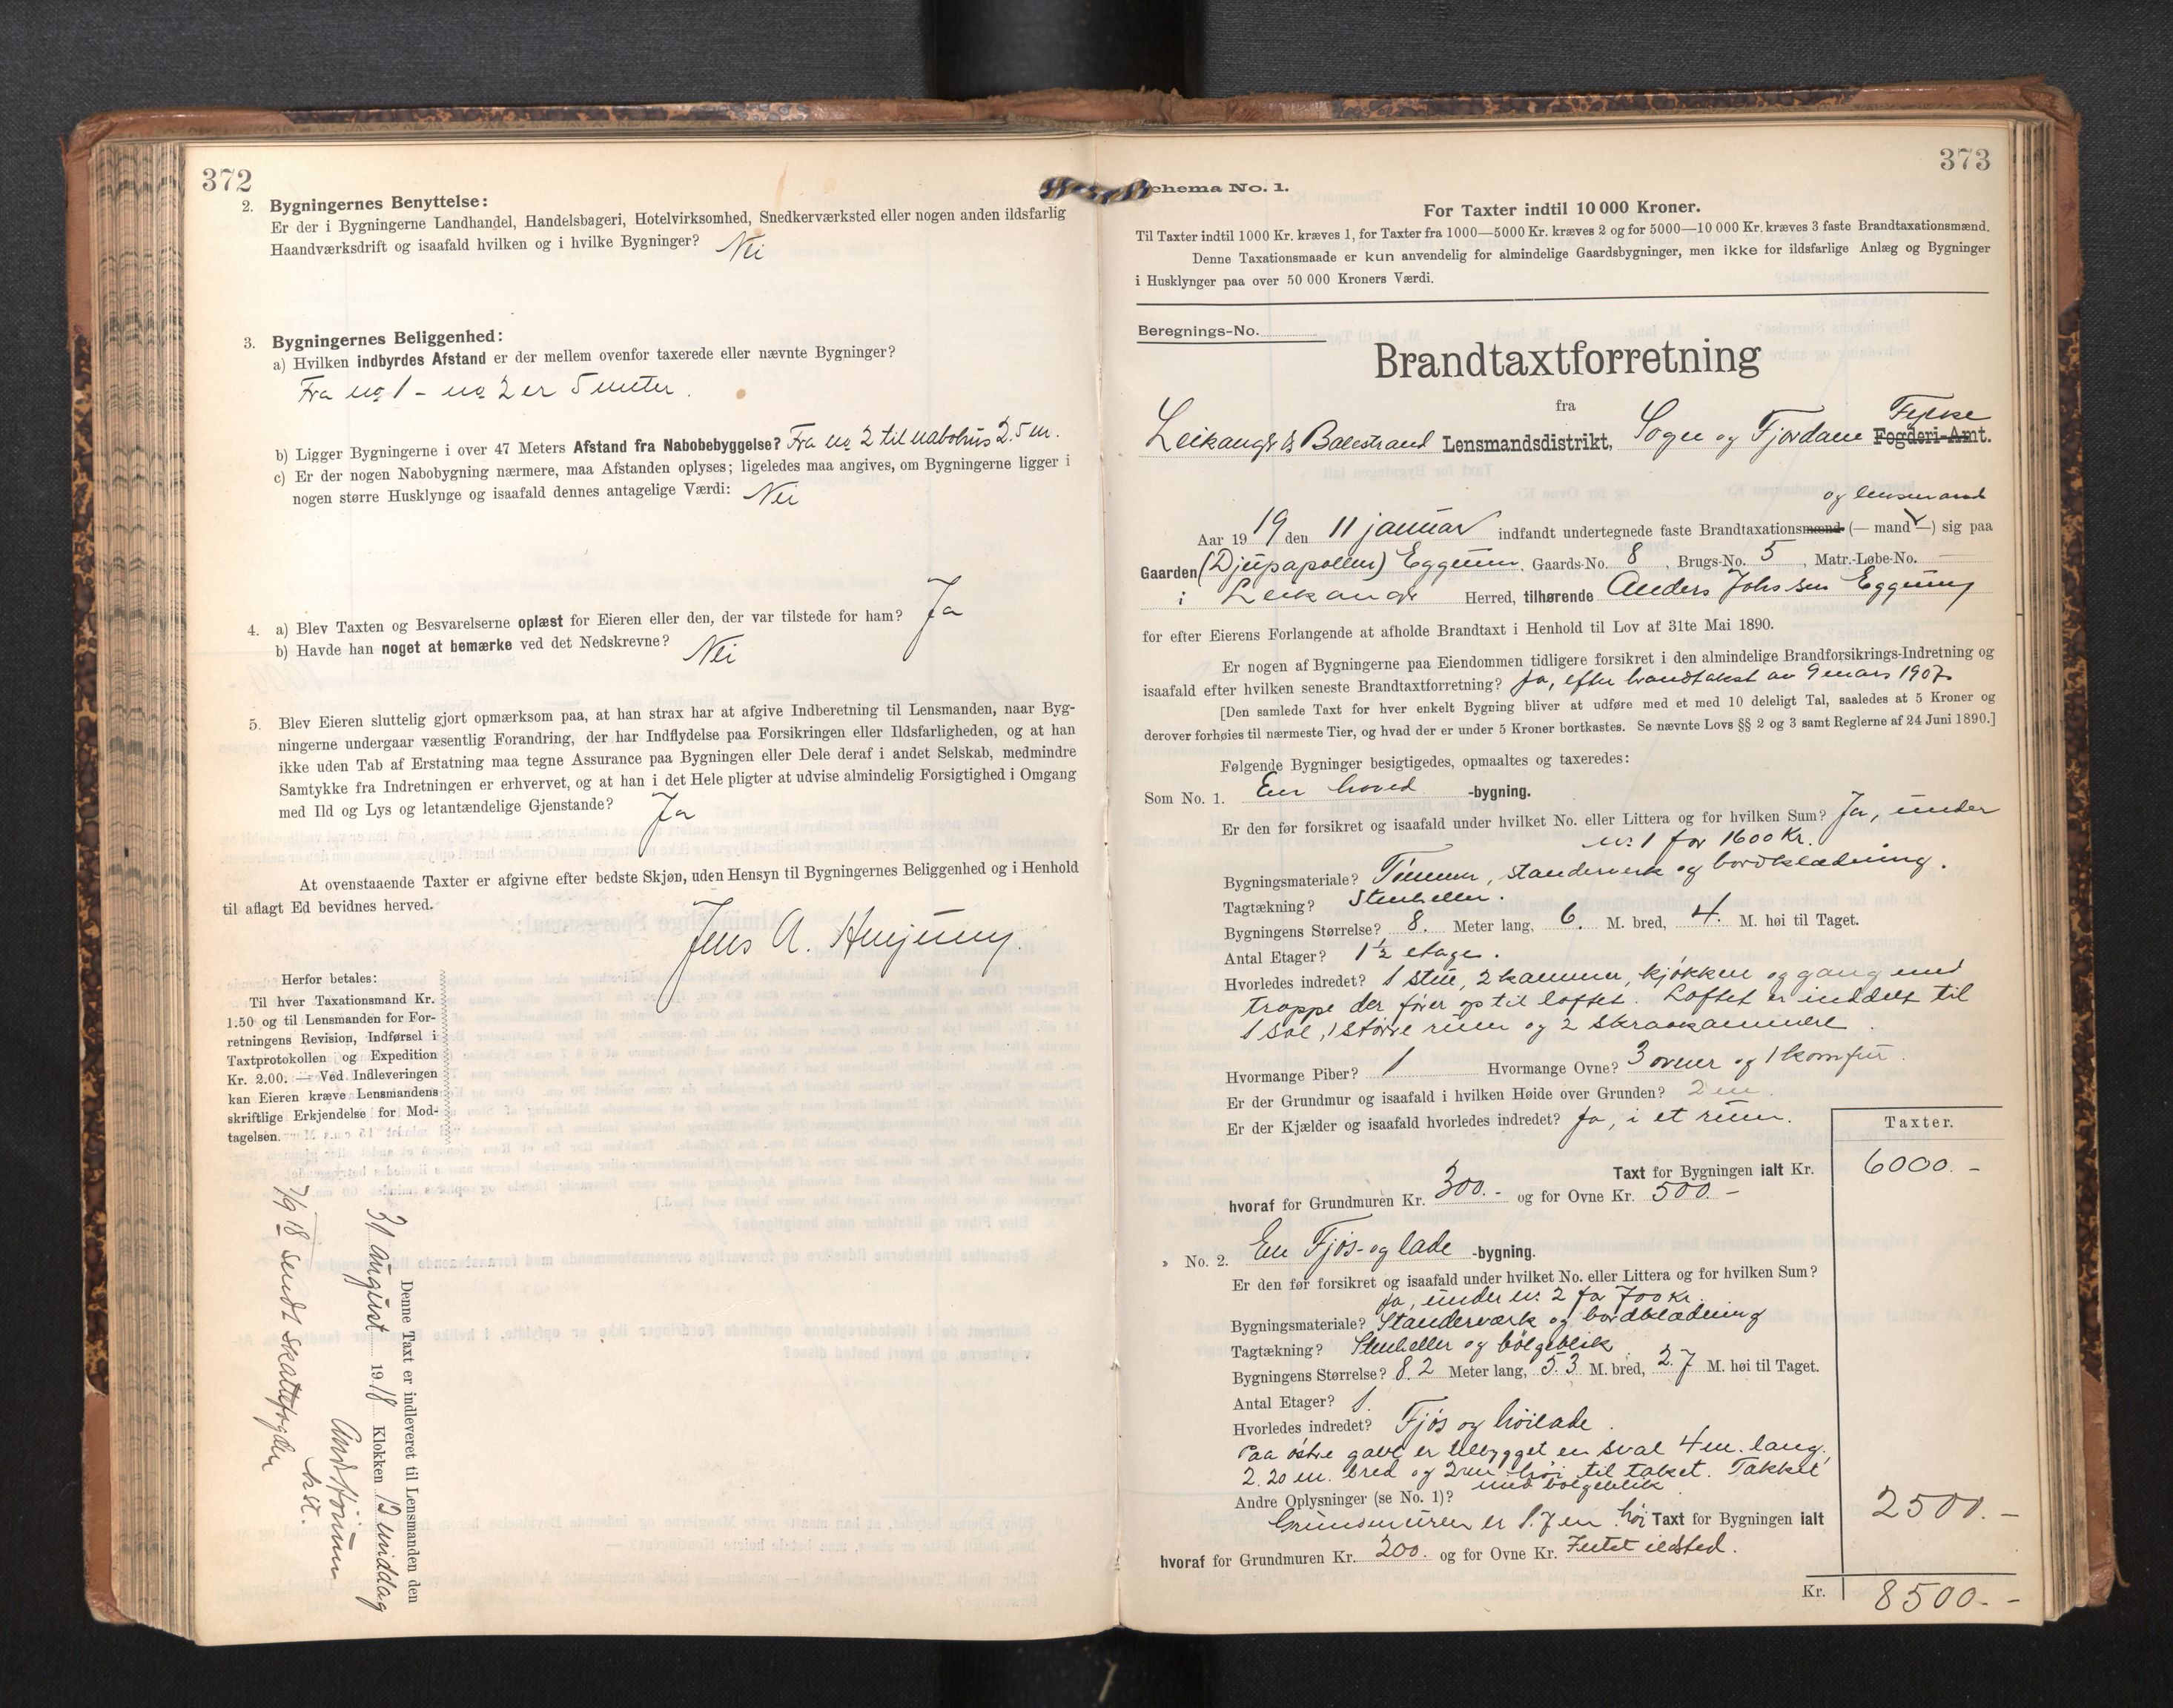 372
2. Bygningernes Benyttelse:
Er der i Bygningerne Landhandel, Handelsbageri, Hotelvirksomhed, Snedkerværksted eller nogen anden ildsfarlig
Haandværksdrift og isaafald hvilken og i hvilke Bygninger? Nei
3. Bygningernes Beliggenhed:
a) Hvilken indbyrdes Afstand er der mellem ovenfor taxerede eller nævnte Bygninger?
Fra no 1 - no 2 er 5 meter.
b) Ligger Bygningerne i over 47 Meters Afstand fra Nabobebyggelse? Fra no 2 til nabohus 2.5 m.
c) Er der nogen Nabobygning nærmere, maa Afstanden oplyses; ligeledes maa angives, om Bygningerne ligger i
nogen større Husklynge og isaafald dennes antagelige Værdi: Nei
4. a) Blev Taxten og Besvarelserne oplæst for Eieren eller den, der var tilstede for ham? Ja
b) Havde han noget at bemærke ved det Nedskrevne? Nei
5. Blev Eieren sluttelig gjort opmærksom paa, at han strax har at afgive Indberetning til Lensmanden, naar Byg-
ningerne undergaar væsentlig Forandring, der har Indflydelse paa Forsikringen eller Ildsfarligheden, og at han
ikke uden Tab af Erstatning maa tegne Assurance paa Bygningen eller Dele deraf i andet Selskab, medmindre
Samtykke fra Indretningen er erhvervet, og at han i det Hele pligter at udvise almindelig Forsigtighed i Omgang
med Ild og Lys og letantændelige Gjenstande? Ja
At ovenstaaende Taxter er afgivne efter bedste Skjøn, uden Hensyn til Bygningernes Beliggenhed og i Henhold
til aflagt Ed bevidnes herved.
Jens A. Henjum
Herfor betales:
Til hver Taxationsmand Kr.
1.50 og til Lensmanden for For-
retningens Revision, Indførsel i
Taxtprotokollen og Expedition
Kr. 2.00. — Ved Indleveringen
kan Eieren kræve Lensmandens
skriftlige Erkjendelse for Mod-
tagelsen.
Denne Taxt er indleveret til Lensmanden den
31 august 1918 Klokken 12 middag
kst.
7/9 18 sendt skattefogden
373
Schema No. 1.
For Taxter indtil 10 000 Kroner.
Til Taxter indtil 1000 Kr. kræves 1, for Taxter fra 1000—5000 Kr. kræves 2 og for 5000—10 000 Kr. kræves 3 faste Brandtaxationsmænd.
Denne Taxationsmaade er kun anvendelig for almindelige Gaardsbygninger, men ikke for ildsfarlige Anlæg og Bygninger
i Husklynger paa over 50 000 Kroners Værdi.
Beregnings-No.
Brandtaxtforretning
fra
Leikanger & Balestrand Lensmandsdistrikt, Sogn og Fjordane Fylke Fogderi-Amt.
og lensmand
Aar 1919 den 11 januar indfandt undertegnede faste Brandtaxationsmænd (— mand —) sig paa
Gaarden (Djupapollen) Eggum, Gaards-No. 8, Brugs-No. 5, Matr.-Løbe-No.
i Leikanger Herred, tilhørende Anders Johssen Eggum
for efter Eierens Forlangende at afholde Brandtaxt i Henhold til Lov af 31te Mai 1890.
Er nogen af Bygningerne paa Eiendommen tidligere forsikret i den almindelige Brandforsikrings-Indretning og
isaafald efter hvilken seneste Brandtaxtforretning? Ja, efter brandtakst av 9 mars 1907
[Den samlede Taxt for hver enkelt Bygning bliver at udføre med et med 10 deleligt Tal, saaledes at 5 Kroner og
derover forhøies til nærmeste Tier, og hvad der er under 5 Kroner bortkastes. Se nævnte Lovs §§ 2 og 3 samt Reglerne af 24 Juni 1890.]
Følgende Bygninger besigtigedes, opmaaltes og taxeredes:
Som No. 1. En hoved -bygning.
Er den før forsikret og isaafald under hvilket No. eller Littera og for hvilken Sum? Ja, under
no 1 for 1600 Kr.
Bygningsmateriale? Tømmer, standerverk og bordklædning.
Tagtækning? Stenheller.
Bygningens Størrelse? 8. Meter lang, 6. M. bred, 4. M. høi til Taget.
Antal Etager? 1½ etage.
Hvorledes indredet? 1 stue, 2 kammer, kjøkken og gang med
trappe der fører op til loftet. Loftet er inddelt til
1 sal, 1 større rum og 2 skraakammere.
Hvormange Piber? 1 Hvormange Ovne? 3 ovner og 1 komfur.
Er der Grundmur og isaafald i hvilken Høide over Grunden? 2 m.
Er der Kjælder og isaafald hvorledes indredet? Ja, i et rum.
Taxter.
Taxt for Bygningen ialt Kr. 6000.-
hvoraf for Grundmuren Kr. 300.- og for Ovne Kr. 500.-
» No. 2. En Fjøs- og lade -bygning.
Er den før forsikret og isaafald under hvilket No. eller Littera og for hvilken Sum?
Ja, under no. 2 for 700 Kr.
Bygningsmateriale? Standerværk og bordklædning
Tagtækning? Stenheller og bølgeblik
Bygningens Størrelse? 8.2 Meter lang, 5.3 M. bred, 2.7 M. høi til Taget.
Antal Etager? 1.
Hvorledes indredet? Fjøs og høilade.
Paa østre gavl er tilbygget en sval 4 m. lang,
2.20 m. bred og 2 m høi til taket. Takket
med bølgeblik
Andre Oplysninger (se No. 1)?
Grundmuren er 1.7 m. høi Taxt for Bygningen ialt 2500.-
hvoraf for Grundmuren Kr. 200. og for Ovne Kr. Intet ildsted.
Kr. 8500.-